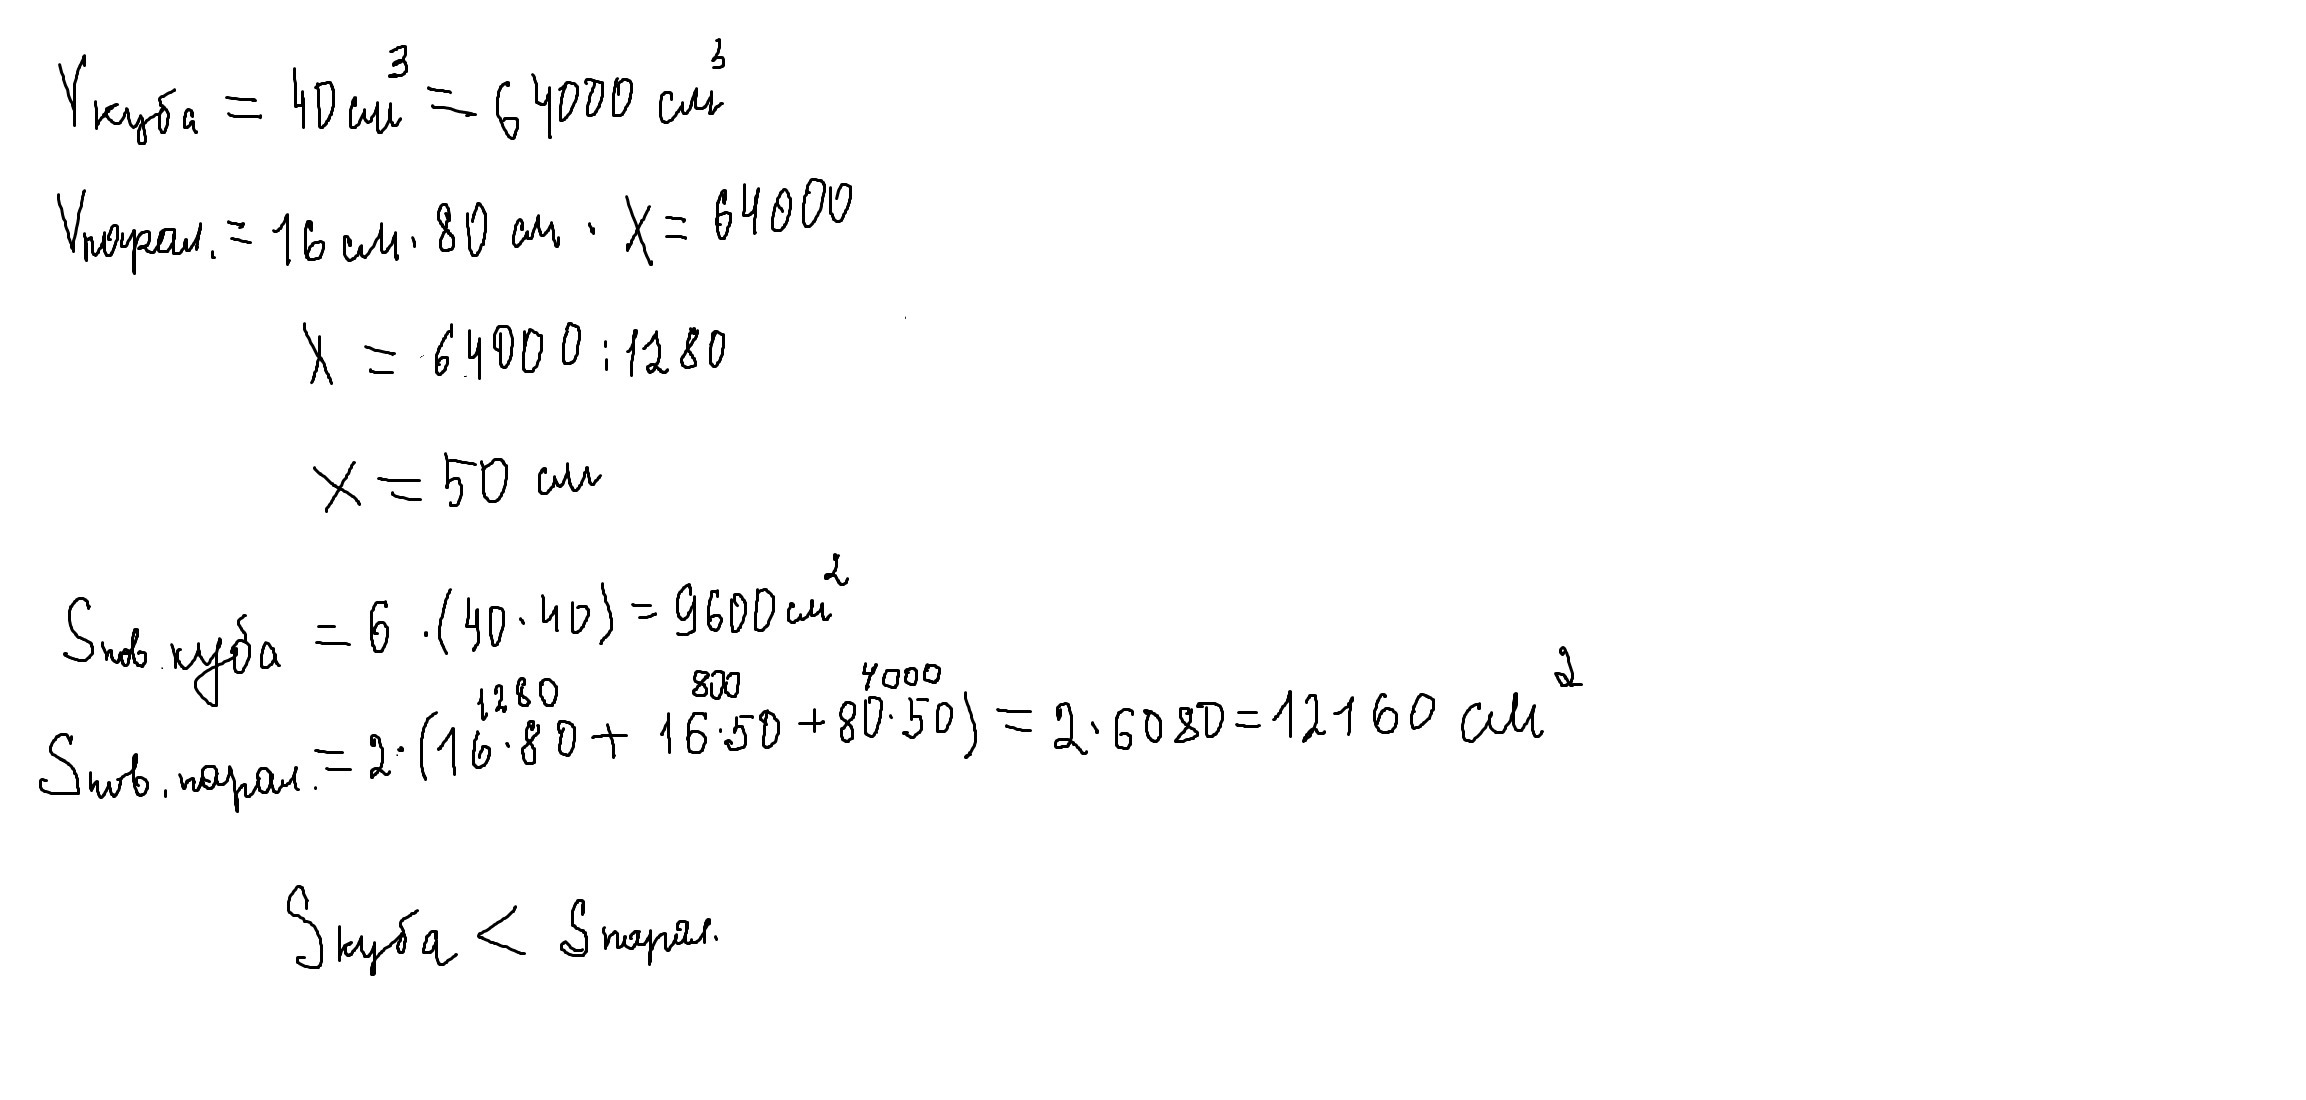 Vкуба = 40 см³ = 64000 см³
Vпарал. = 16 см · 80 см · X = 64000
X = 64000 : 1280
X = 50 см
Sпов. куба = 6 · (40 · 40) = 9600 см²
1280 800 4000
Sпов. парал. = 2 · (16 · 80 + 16 · 50 + 80 · 50) = 2 · 6080 = 12160 см²
Sкуба < Sпарал.